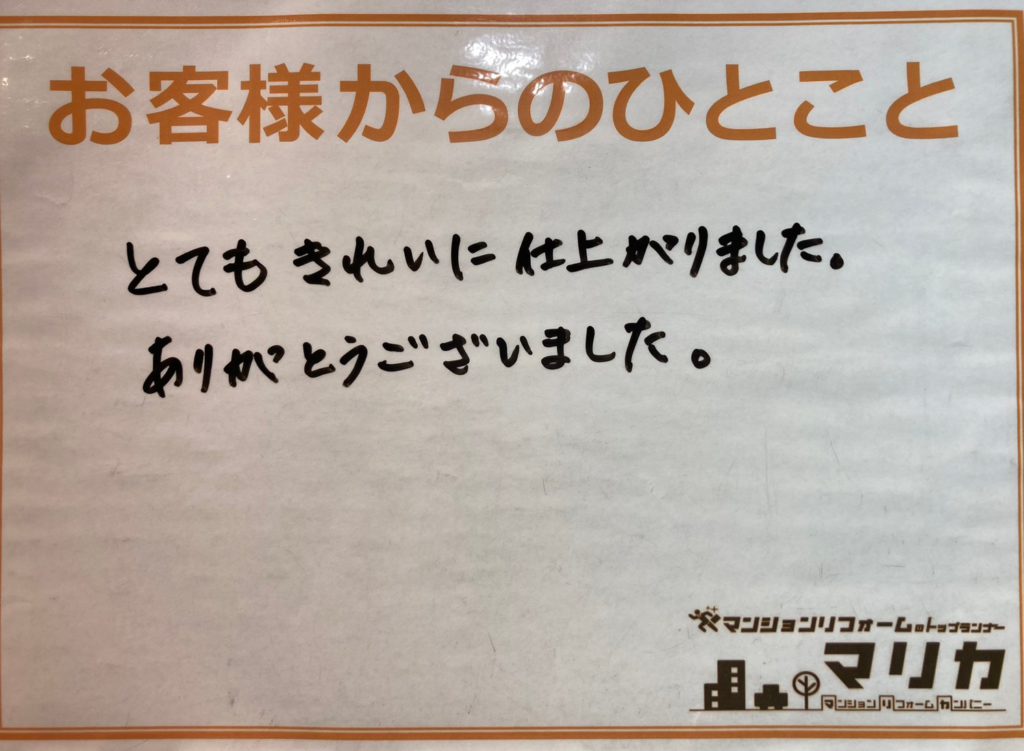 お客様からのひとこと
とても きれいに 仕上がりました。
ありがとうございました。
マンションリフォームのトップランナー
マリカ
マンションリフォームカンパニー